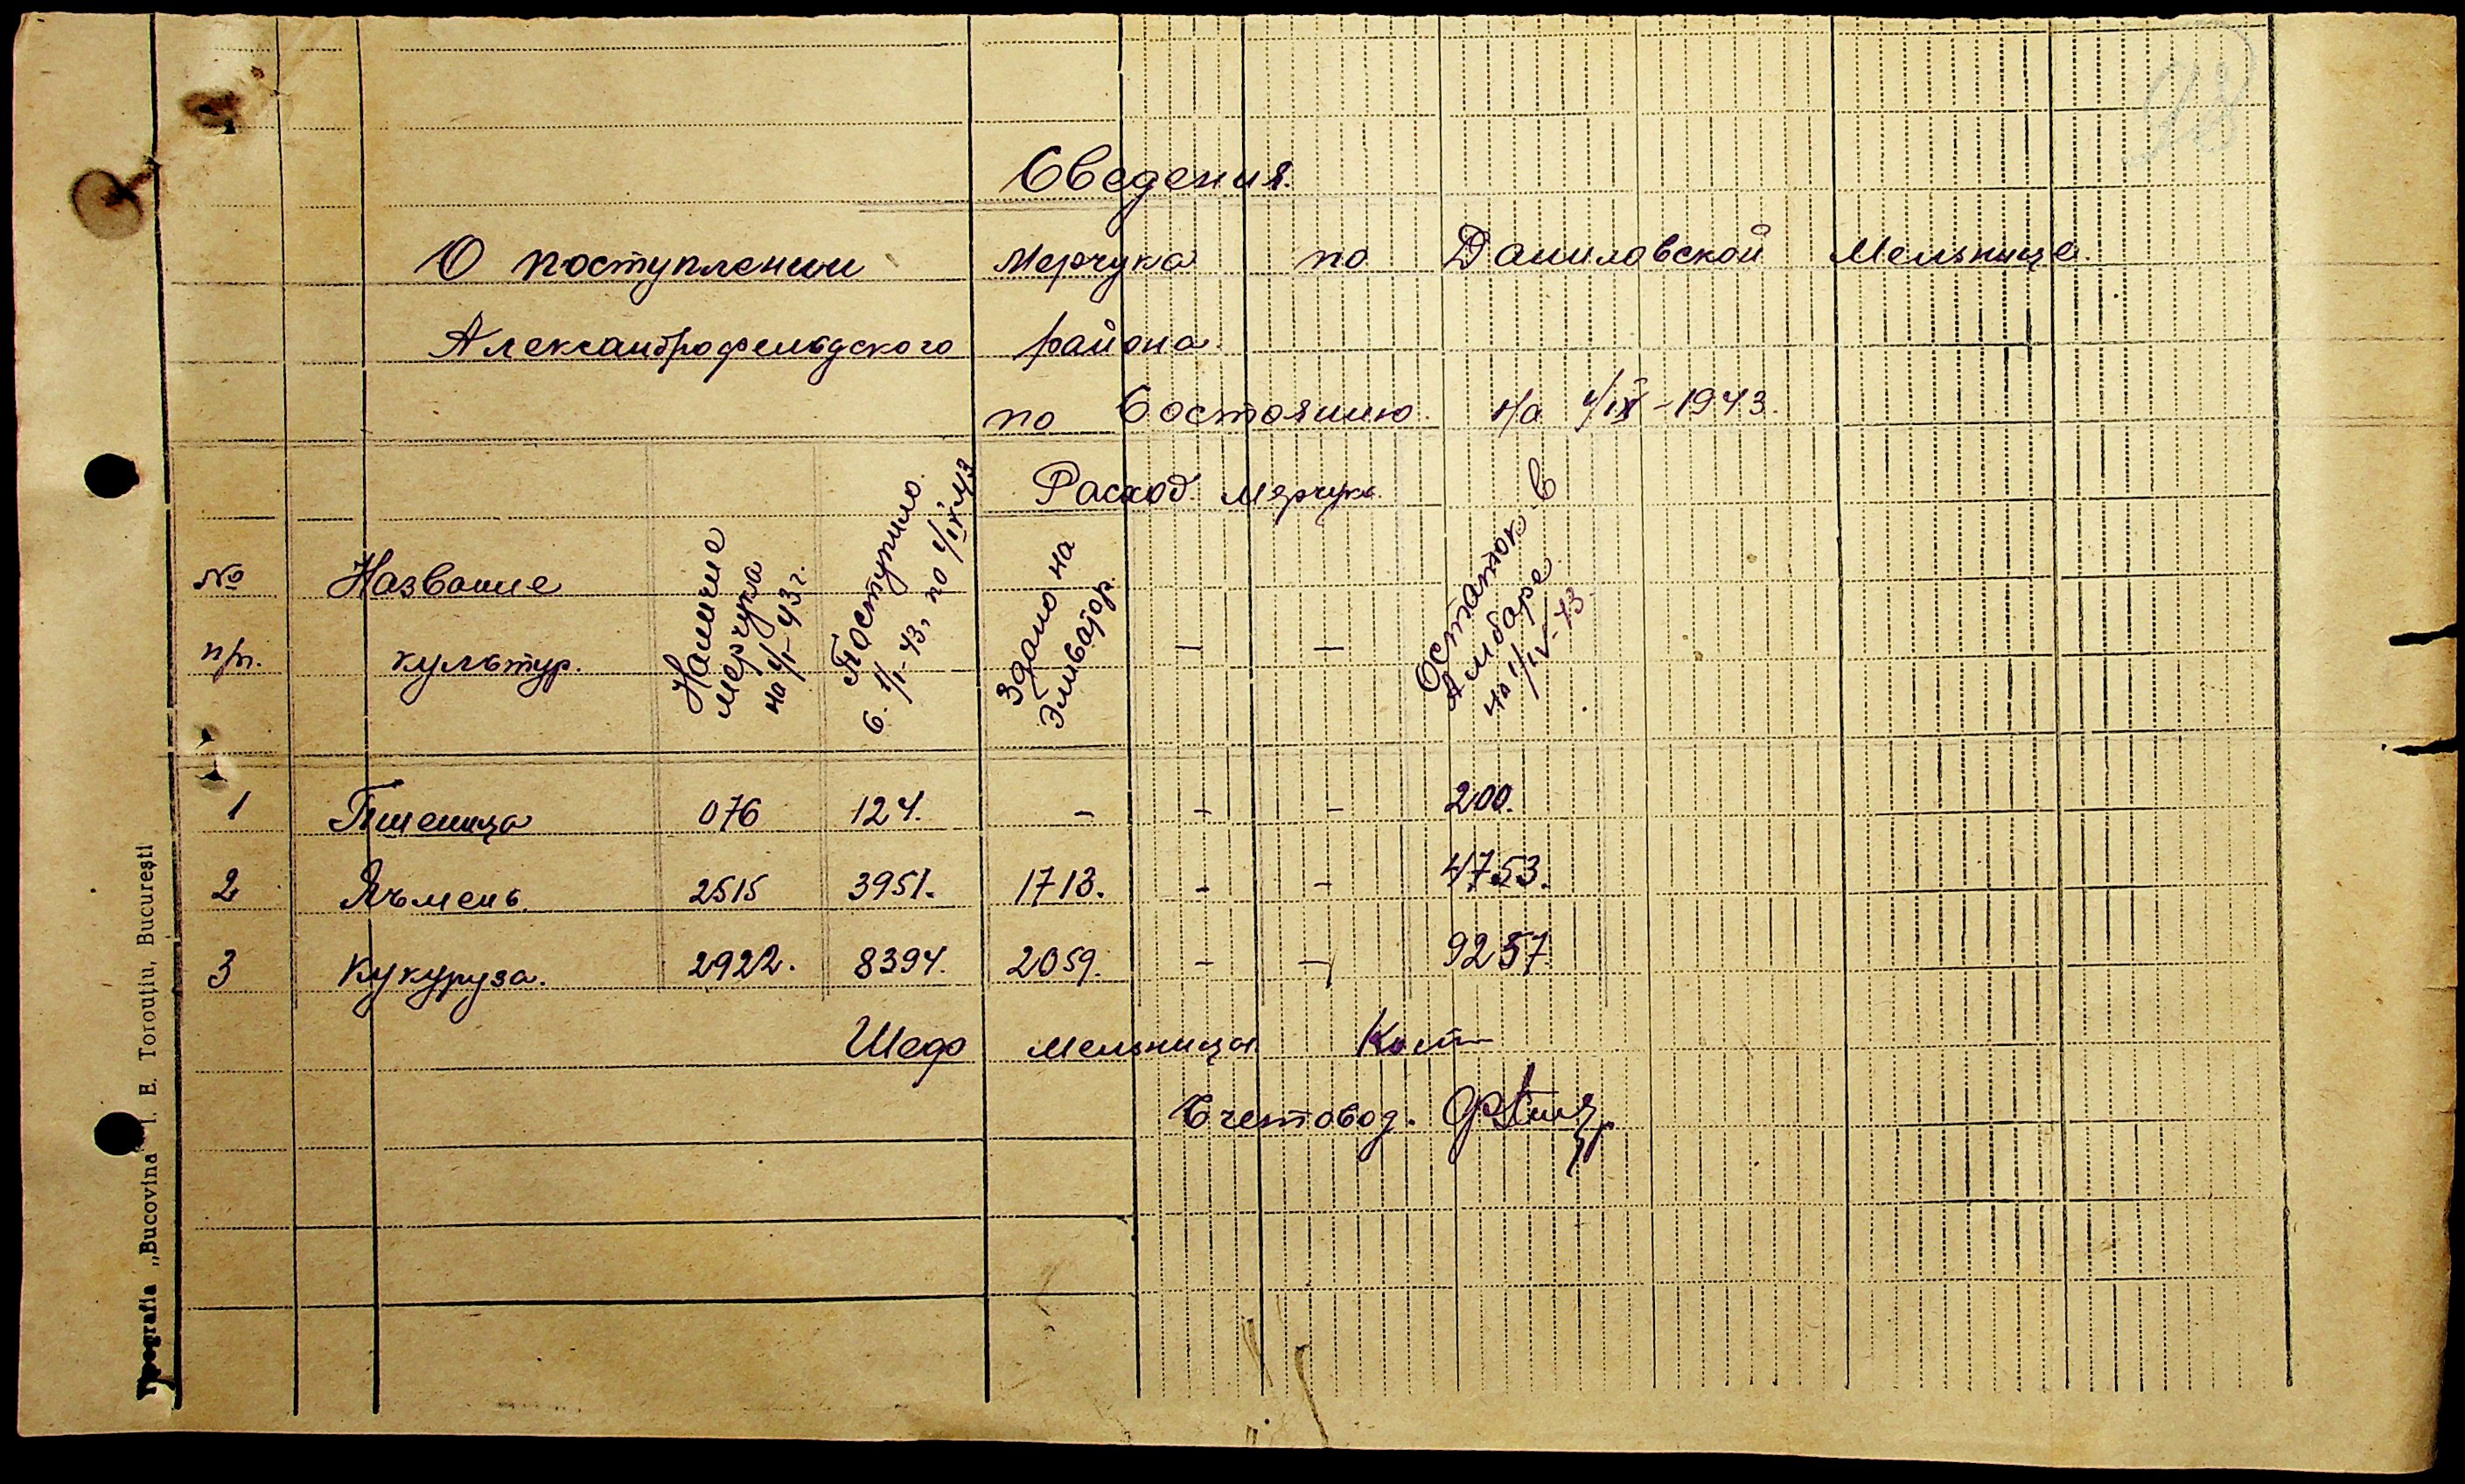 Сведения.
О поступлении Мерчука по Даниловской Мельнице.
Александрофельдского района.
по Состоянию. На 1/IX-1943.
Расход. Мерчука.
№ пп.
Название культур.
Наличие мерчука на 1/I-43 г.
Поступило. с. 1/I-43, по 1/IX 43
Здано на Эливатор.
— —
Остаток в Амбаре на 1/IV-43.
1 Пшеница 076 124. - - - 200.
2 Ячмень. 2515 3951. 1713. - - 4753.
3 Кукуруза. 2922. 8394. 2059. - - 9257.
Шеф мельницы
Счетовод.
Tipografia „Bucovina" I. E. Torouțiu, București